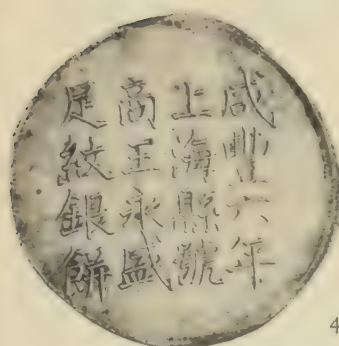 咸豐六年
上海縣號
商王永盛
足紋銀餅
4